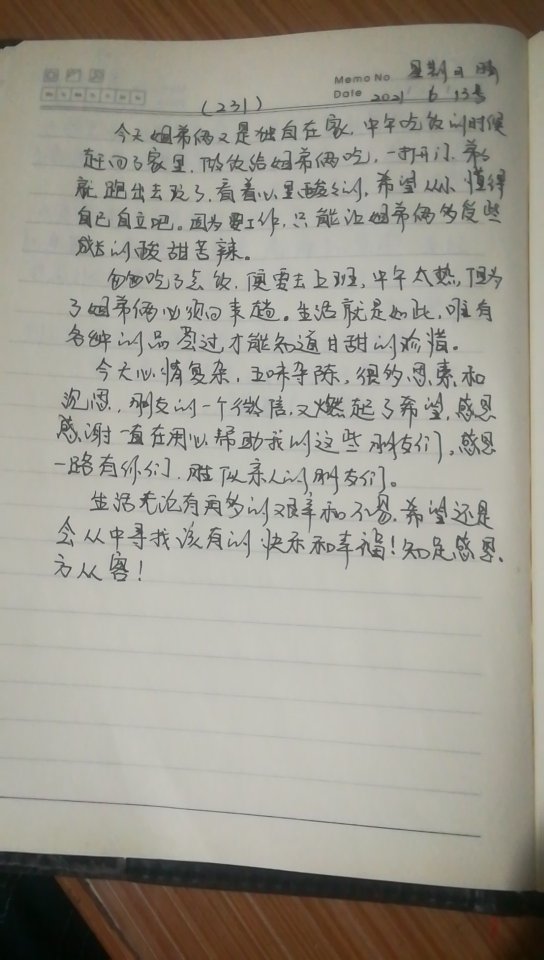 Memo No. 星期日 晴
Date 2021 6 13号
(231)
今天姐弟俩又是独自在家，中午吃饭的时候
赶回了家里，做饭给姐弟俩吃，一打开门，弟弟
就跑出去玩了，看着心里酸酸的，希望从小懂得
自己自立吧。因为要工作，只能让姐弟俩多受些
成长的酸甜苦辣。
匆匆吃了点饭，便要去上班，中午太热，但为
了姐弟俩必须回来趟。生活就是如此，唯有
各种的品尝过才能知道甘甜的珍惜。
今天心情复杂，五味杂陈，很多思索和
沉思，朋友的一个微信，又燃起了希望，感恩
感谢一直在用心帮助我的这些朋友们，感恩
一路有你们，胜似亲人的朋友们。
生活无论有再多的艰辛和不易，希望还是
会从中寻找该有的快乐和幸福！知足感恩，
方从容！